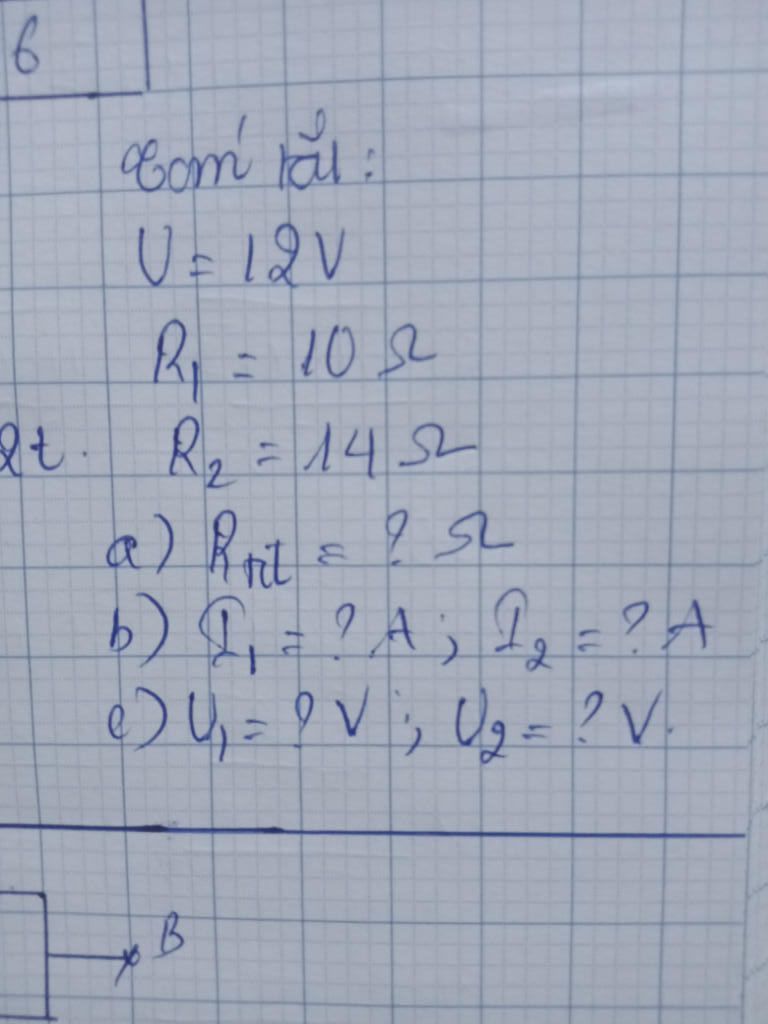 6
Tóm tắt:
U = 12V
R₁ = 10 Ω
2t. R₂ = 14 Ω
a) Rnt = ? Ω
b) I₁ = ? A ; I₂ = ? A
c) U₁ = ? V ; U₂ = ? V.
B